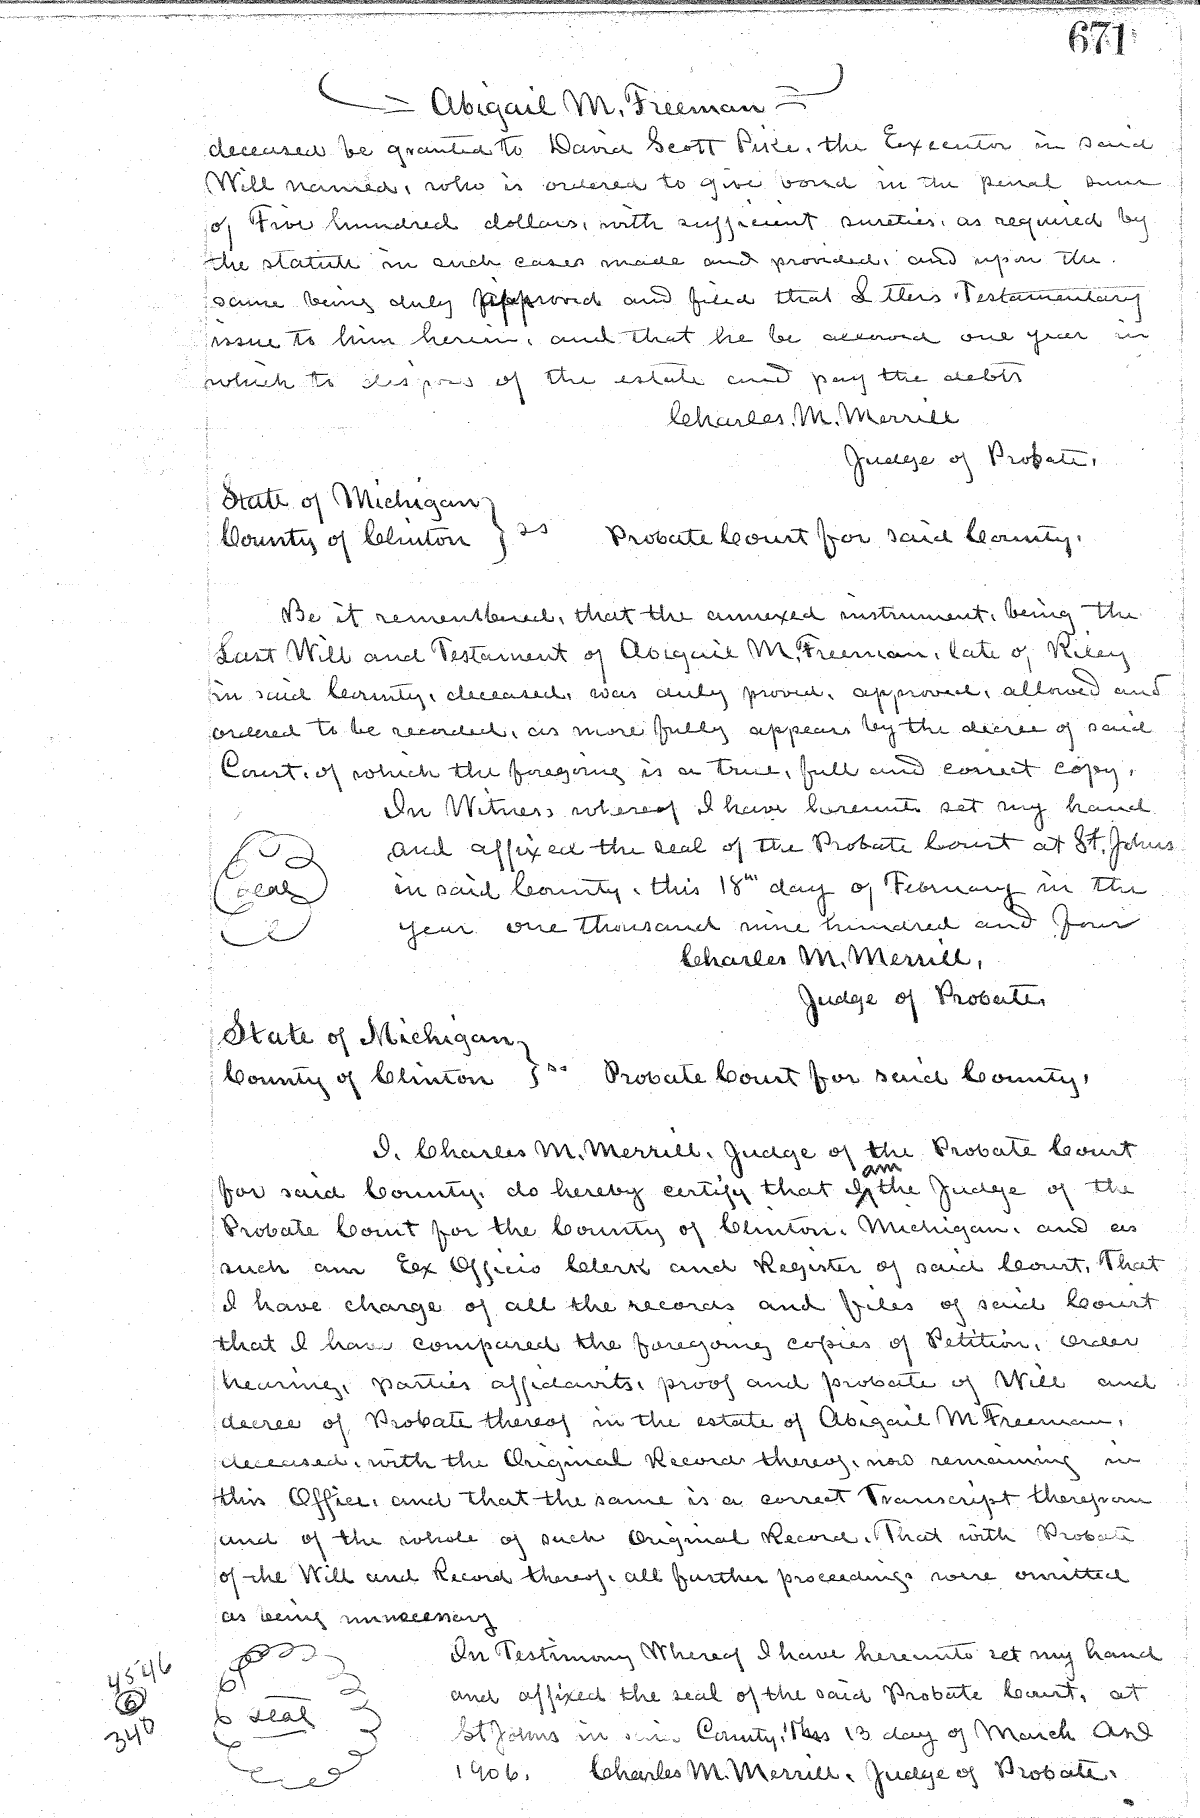 671
Abigail M. Freeman
deceased be granted to David Scott Pike, the Executor in said
Will named, who is ordered to give bond in the penal sum
of Five hundred dollars, with sufficient sureties, as required by
the statute in such cases made and provided, and upon the
same being duly approved and filed that Letters Testamentary
issue to him herein, and that he be allowed one year in
which to dispose of the estate and pay the debts
Charles M. Merrill
Judge of Probate.
State of Michigan
County of Clinton } ss Probate Court for said County.
Be it remembered, that the annexed instrument, being the
Last Will and Testament of Abigail M. Freeman, late of Riley
in said County, deceased, was duly proved, approved, allowed and
ordered to be recorded, as more fully appears by the decree of said
Court, of which the foregoing is a true, full and correct copy.
In Witness whereof I have hereunto set my hand
and affixed the seal of the Probate Court at St. Johns
seal
in said County, this 18th day of February in the
year one thousand nine hundred and four
Charles M. Merrill,
Judge of Probate.
State of Michigan
County of Clinton } ss Probate Court for said County.
I, Charles M. Merrill, Judge of the Probate Court
for said County, do hereby certify that I am the Judge of the
Probate Court for the County of Clinton, Michigan, and as
such am Ex Officio Clerk and Register of said Court, That
I have charge of all the records and files of said Court
that I have compared the foregoing copies of Petition, order
hearing, parties affidavits, proof and probate of Will and
decree of Probate thereof in the estate of Abigail M Freeman,
deceased, with the Original Record thereof, now remaining in
this Office, and that the same is a correct Transcript therefrom
and of the whole of such Original Record. That with Probate
of the Will and Record thereof, all further proceedings were omitted
as being unnecessary
In Testimony Whereof I have hereunto set my hand
4546
6
340
seal
and affixed the seal of the said Probate Court, at
St Johns in said County, this 13 day of March A.D.
1906. Charles M. Merrill, Judge of Probate.